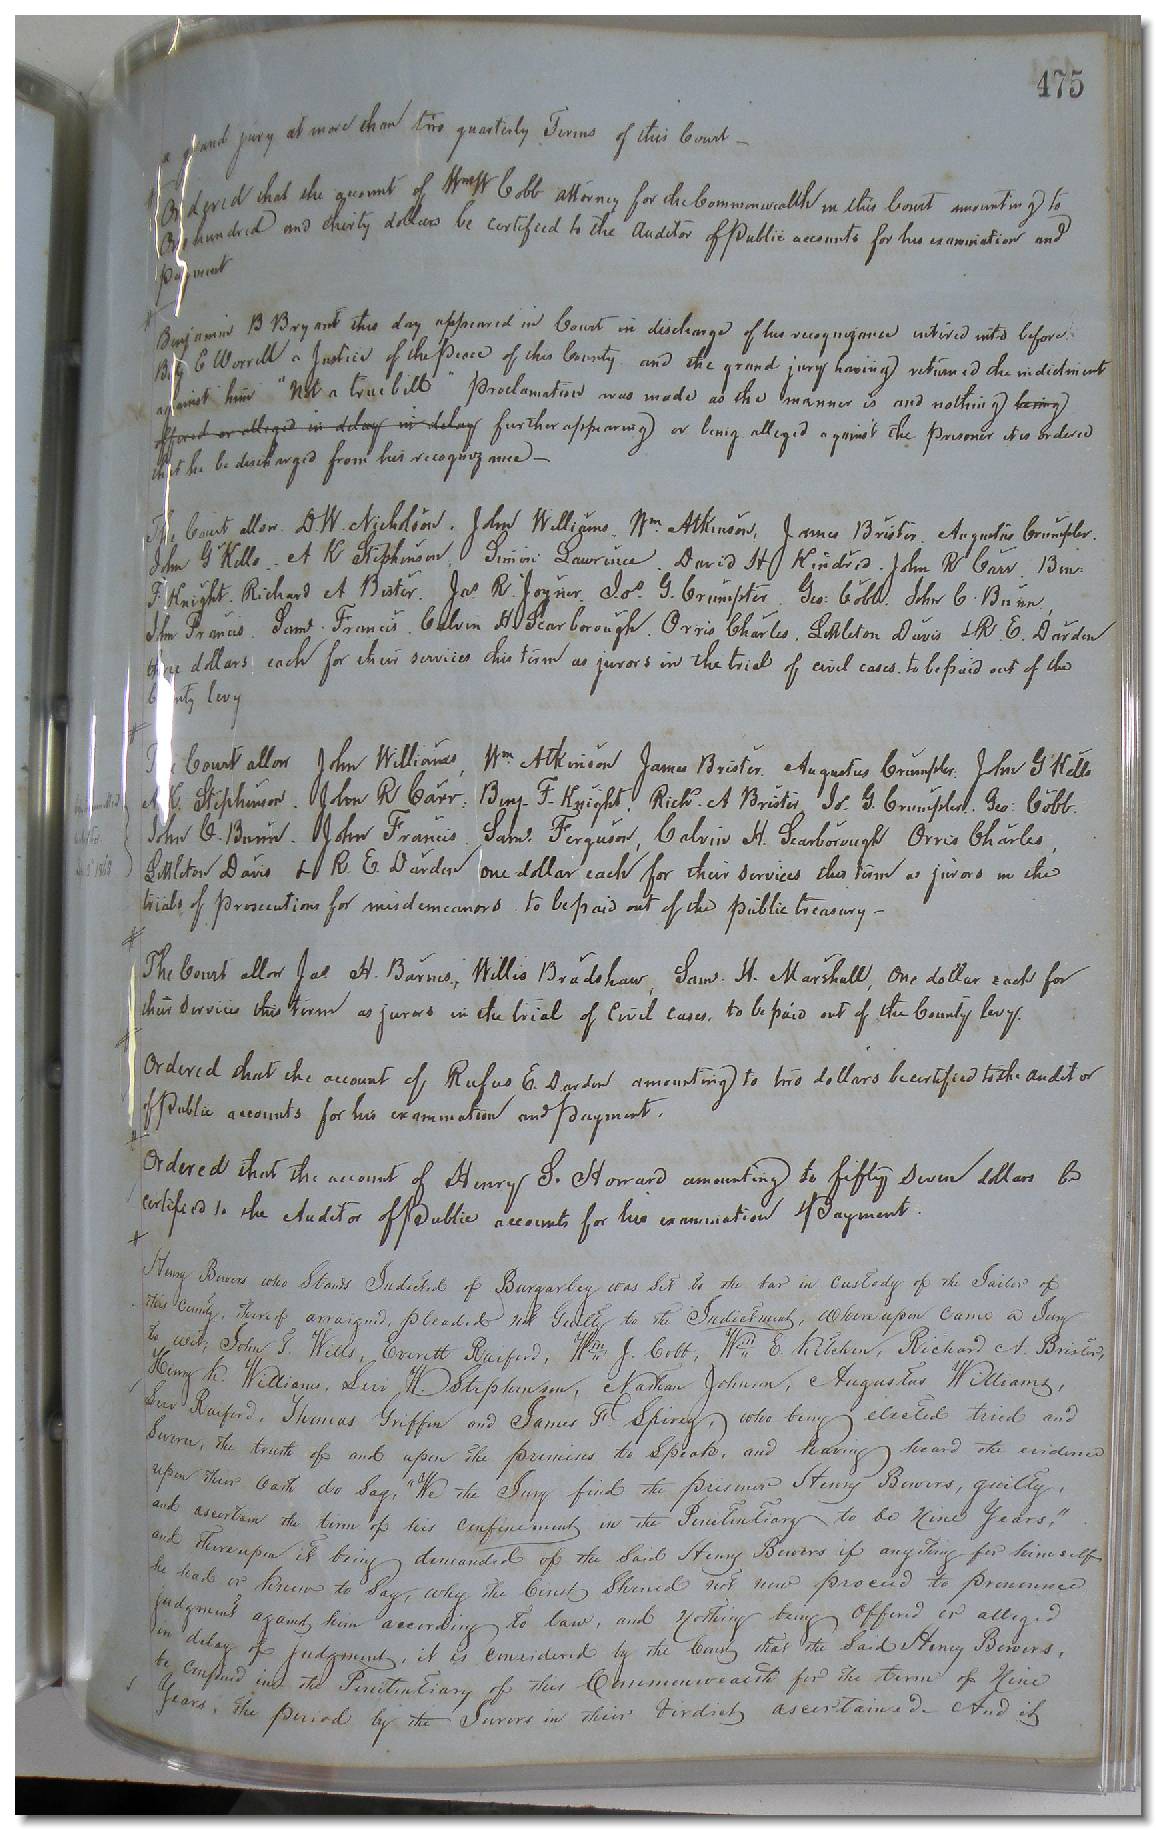 475
a grand jury at more than two quarterly Terms of this Court —
Ordered that the account of Wm W Cobb attorney for the Commonwealth in this Court amounting to
One hundred and thirty dollars be certified to the Auditor of Public accounts for his examination and
payment
Benjamin B Bryant this day appeared in Court in discharge of his recognizance entered into before
E Worrell a Justice of the Peace of this County and the grand jury having returned the indictment
against him "Not a true bill" Proclamation was made as the manner is and nothing being
offered or alleged in delay in delay further appearing or being alleged against the prisoner it is ordered
that he be discharged from his recognizance —
The Court allow D W. Nicholson. John Williams. Wm. Atkinson, James Brister. Augustus Crumpler.
John G Kello. A K Stephenson. Simon Lawrence. David H Kindred. John R Carr. Ben.
F. Knight. Richard A Brister. Jas R. Joyner. Jos. G. Crumpler. Geo: Cobb. John C. Bunn.
John Francis. Saml. Francis. Calvin H Scarborough. Orris Charles, Littleton Davis & R. E. Darden
One dollars each for their services this term as jurors in the trial of civil cases. to be paid out of the
County levy
The Court allow John Williams, Wm. Atkinson James Brister. Augustus Crumpler. John G Kello
A K. Stephenson. John R Carr. Benj. F. Knight. Richd. A Brister, Jo. G. Crumpler. Geo: Cobb.
John C. Bunn. John Francis. Saml. Ferguson, Calvin H. Scarborough Orris Charles,
Littleton Davis & R. E. Darden one dollar each for their services this term as jurors in the
trials of prosecutions for misdemeanors to be paid out of the public treasury —
The Court allow Jas H. Barnes, Willis Bradshaw, Saml. H. Marshall, One dollar each for
their services this term as jurors in the trial of Civil cases. to be paid out of the County levy.
Ordered that the account of Rufus E. Darden amounting to two dollars be certified to the auditor
of Public accounts for his examination and payment.
Ordered that the account of Henry S. Howard amounting to fifty seven dollars be
certified to the Auditor of Public accounts for his examination & Payment.
Henry Bowers who Stands Indicted of Burgarley was Set to the bar in custody of the Jailor of
this County, thereof arraigned, pleaded not Guilty to the Indictment, whereupon came a Jury
to wit; John T. Wills, Everett Raiford, Wm. J. Cobb, Wm. E. Kitchen, Richard A. Brister,
Henry K. Williams, Levi W. Stephenson, Nathan Johnson, Augustus Williams,
Levi Raiford, Thomas Griffin and James F. Spivey, who being elected tried and
Sworn, the truth of and upon the premises to Speak, and having heard the evidence
upon their Oath do Say, "We the Jury find the prisoner Henry Bowers, guilty,
and ascertain the term of his confinement in the Penitentiary to be Nine Years,"
and thereupon it being demanded of the Said Henry Bowers if anything for himself
he had or knew to Say, why the Court Should not now proceed to pronounce
judgment against him according to law, and nothing being offered or alleged
in delay of judgment, it is considered by the Court that the Said Henry Bowers,
be confined in the Penitentiary of this Commonwealth for the term of Nine
Years, the period by the Jurors in their Verdict ascertained. And it